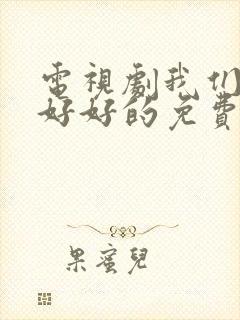 電視劇我们
好好的免費
果蜜兒